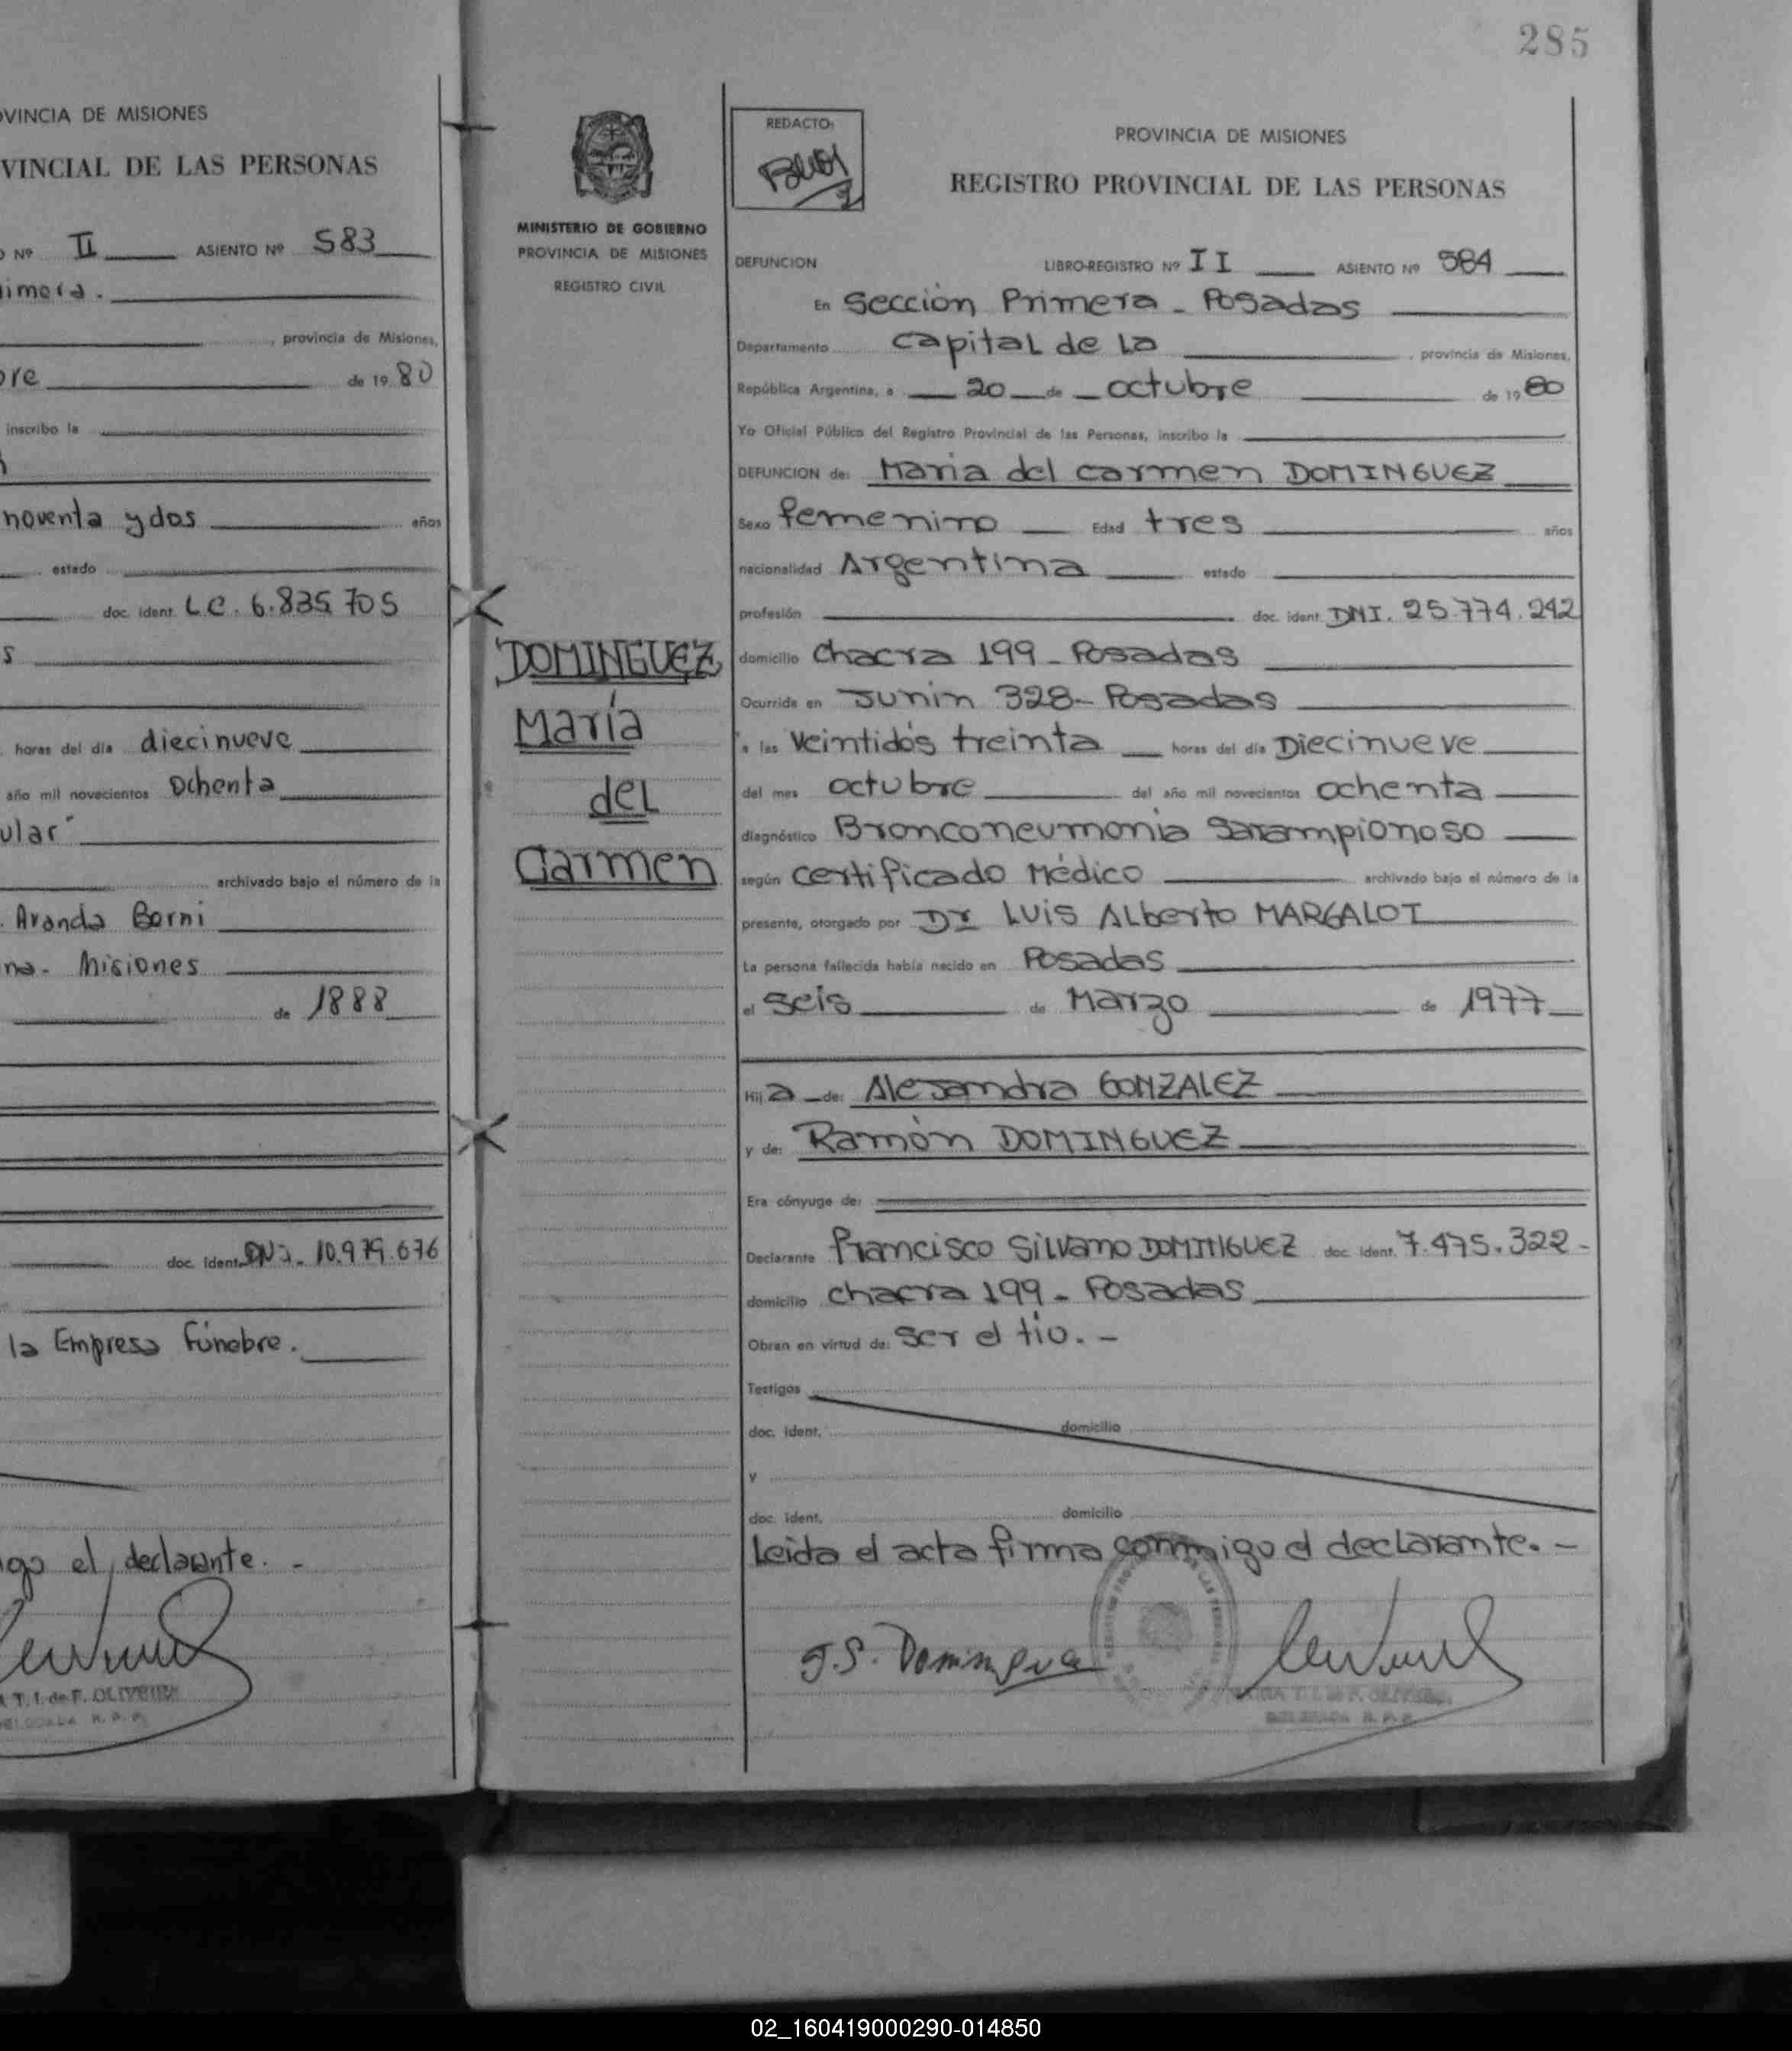 VINCIA DE MISIONES
VINCIAL DE LAS PERSONAS
Nº II ASIENTO Nº 583
imera.
, provincia de Misiones,
bre de 1980
inscribo la
noventa y dos años
estado
doc. ident. L.C. 6.835.705
s
horas del día diecinueve
año mil novecientos Ochenta
ular"
archivado bajo el número de la
Aranda Berni
na. Misiones
de 1888
doc. ident. DNI. 10.979.676
la Empresa Fúnebre.
igo el declarante. -
A T. I. de F. OLIVEIRA
DELEGADA R. P. P.
285
MINISTERIO DE GOBIERNO
PROVINCIA DE MISIONES
REGISTRO CIVIL
DOMINGUEZ
María
del
Carmen
REDACTO:
PROVINCIA DE MISIONES
REGISTRO PROVINCIAL DE LAS PERSONAS
DEFUNCION LIBRO-REGISTRO Nº II ASIENTO Nº 584
En Sección Primera - Posadas
Departamento Capital de la , provincia de Misiones,
República Argentina, a 20 de octubre de 1980
Yo Oficial Público del Registro Provincial de las Personas, inscribo la
DEFUNCION de: Maria del carmen DOMINGUEZ
Sexo femenino Edad tres años
nacionalidad Argentina estado
profesión doc. ident. DNI. 25.774.242
domicilio Chacra 199 - Posadas
Ocurrida en Junin 328 - Posadas
a las Veintidós treinta horas del día Diecinueve
del mes octubre del año mil novecientos ochenta
diagnóstico Bronconeumonia Sarampionoso
según certificado Médico archivado bajo el número de la
presente, otorgado por Dr Luis Alberto MARGALOT
La persona fallecida había nacido en Posadas
el seis de Marzo de 1977
Hija de: Alejandra GONZALEZ
y de: Ramón DOMINGUEZ
Era cónyuge de:
Declarante Francisco Silvano DOMINGUEZ doc. ident. 7.475.322 -
domicilio chacra 199 - Posadas
Obran en virtud de: ser el tio. -
Testigos
doc. ident. domicilio
y
doc. ident. domicilio
Leida el acta firma conmigo el declarante. -
DELEGADA R. P. P.
02_160419000290-014850